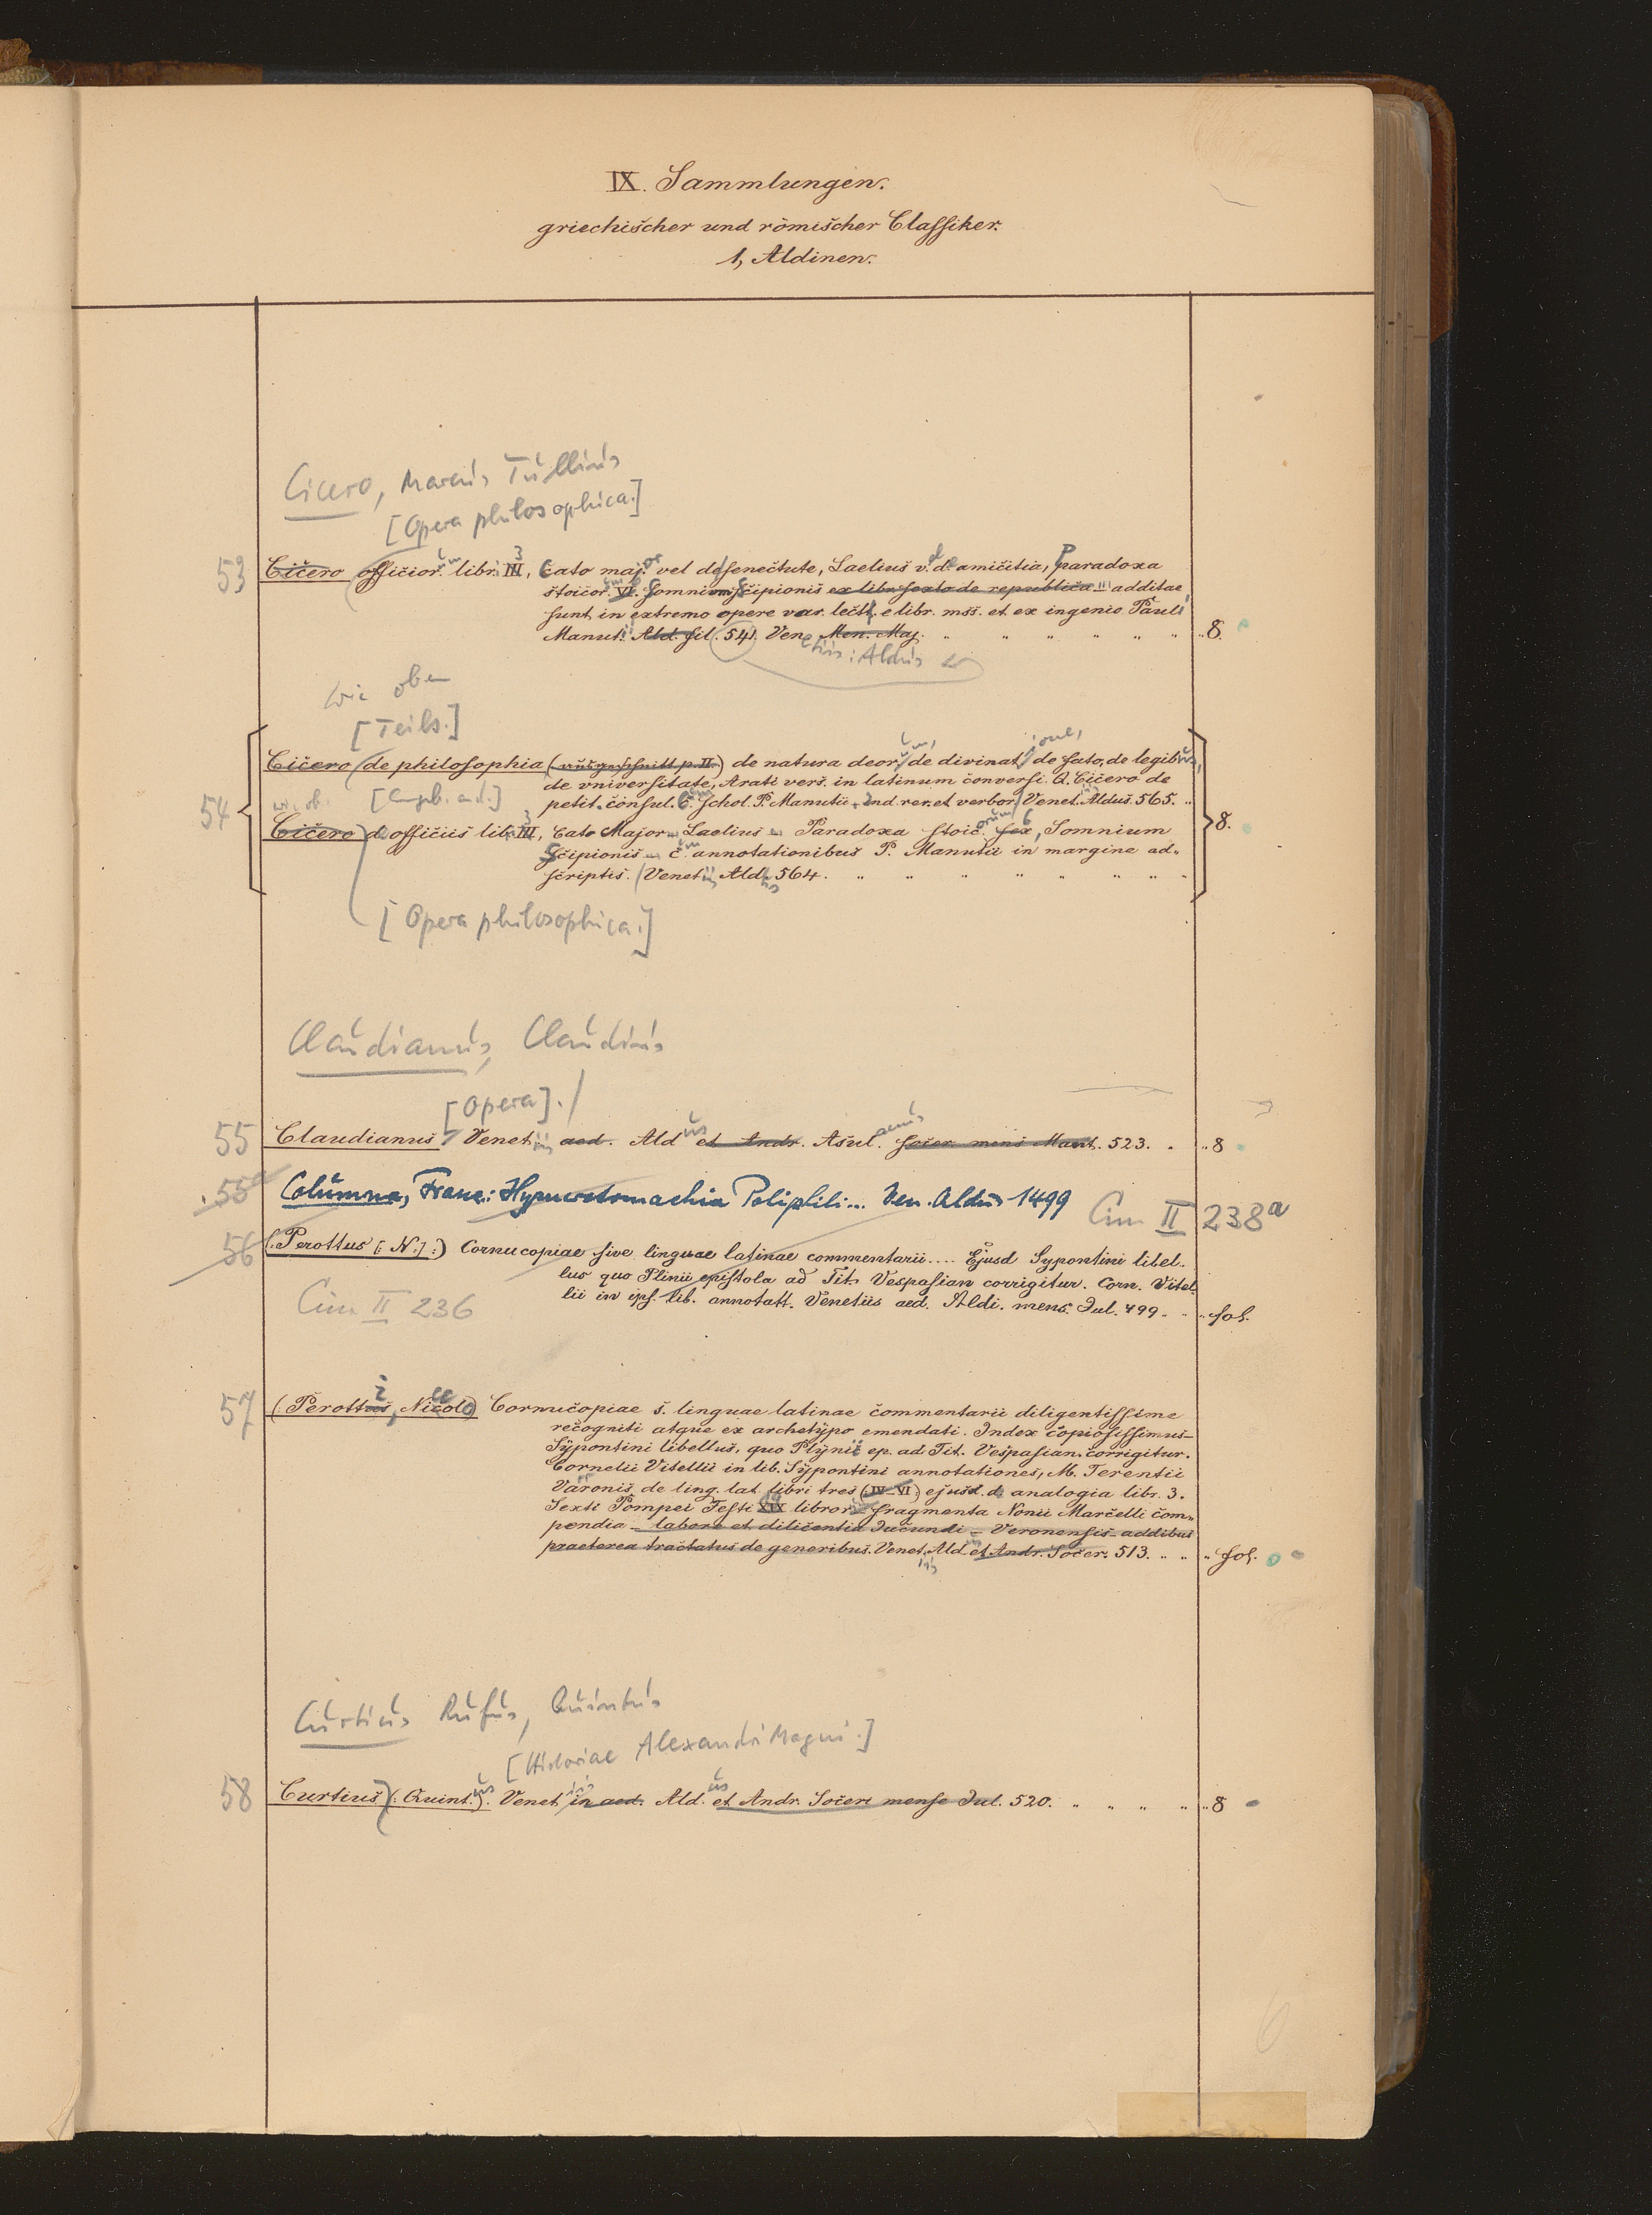 IX. Sammlungen.
griechischer und römischer Classiker.
1, Aldinen.
Cicero, Marcus Tullius
[Opera philosophica.]
53 Cicero officior. libr. III, Cato maj. vel de senectute, Laelius v. de amicitia, Paradoxa
stoicor. VI. Somnium Scipionis ex libr. sexto de republica additae
sunt in extremo opere var. lectt. e libr. mss. et ex ingenio Pauli
Manut. Ald. fil. 541. Ven. Men. Maj. 8.
etiis: Aldus
wie oben
[Teils.]
54 Cicero de philosophia de natura deor. de divinat. de fato, de legibus,
de vniversitate, Arati vers. in latinum conversi. Q. Cicero de
petit. consul. c. schol. P. Manutii. Ind. rer. et verbor. Venet. Aldus. 565.
wie ob. [Angeb. and.]
Cicero de officiis lib. III, Cato Major Laelius Paradoxa stoic. sex, Somnium 8.
Scipionis c. annotationibus P. Manutii in margine ad-
scriptis. Venet. Ald. 564.
[Opera philosophica.]
Claudianus, Claudius
[Opera].
55 Claudianus Venet. aed. Ald. et Andr. Asul. socer. mens Mart. 523. 8
55a Columna, Franc.: Hypnerotomachia Poliphili... Ven. Aldus 1499 Cim II 238a
56 (: Perottus [: N.] :) Cornucopiae sive linguae latinae commentarii.... Ejusd Sypontini libel-
lus quo Plinii epistola ad Tit. Vespasian corrigitur. Corn. Vitel-
lii in ips. lib. annotatt. Venetiis aed. Aldi. mens. Jul. 499. fol.
Cim II 236
57 (: Perottus, Nicolo) Cornucopiae s. linguae latinae commentarii diligentissime
recogniti atque ex archetypo emendati. Index copiosissimus-
Sypontini libellus, quo Plynii ep. ad Tit. Vespasian. corrigitur.
Cornelii Vitellii in lib. Sypontini annotationes, M. Terentii
Varonis de ling. lat. libri tres (IV-VI) ejusd. de analogia libr. 3.
Sexti Pompei Festi XIX libror. fragmenta Nonii Marcelli com-
pendia - labore et dilicentia Jucundi - Veronensis addibus
praeterea tractatus de generibus. Venet. Ald. et Andr. Socer. 513. fol.
Curtius Rufus, Quintus
[Historiae Alexandri Magni.]
58 Curtius (: Quint.:). Venet. in aed. Ald. et Andr. Soceri mense Jul. 520. 8
6